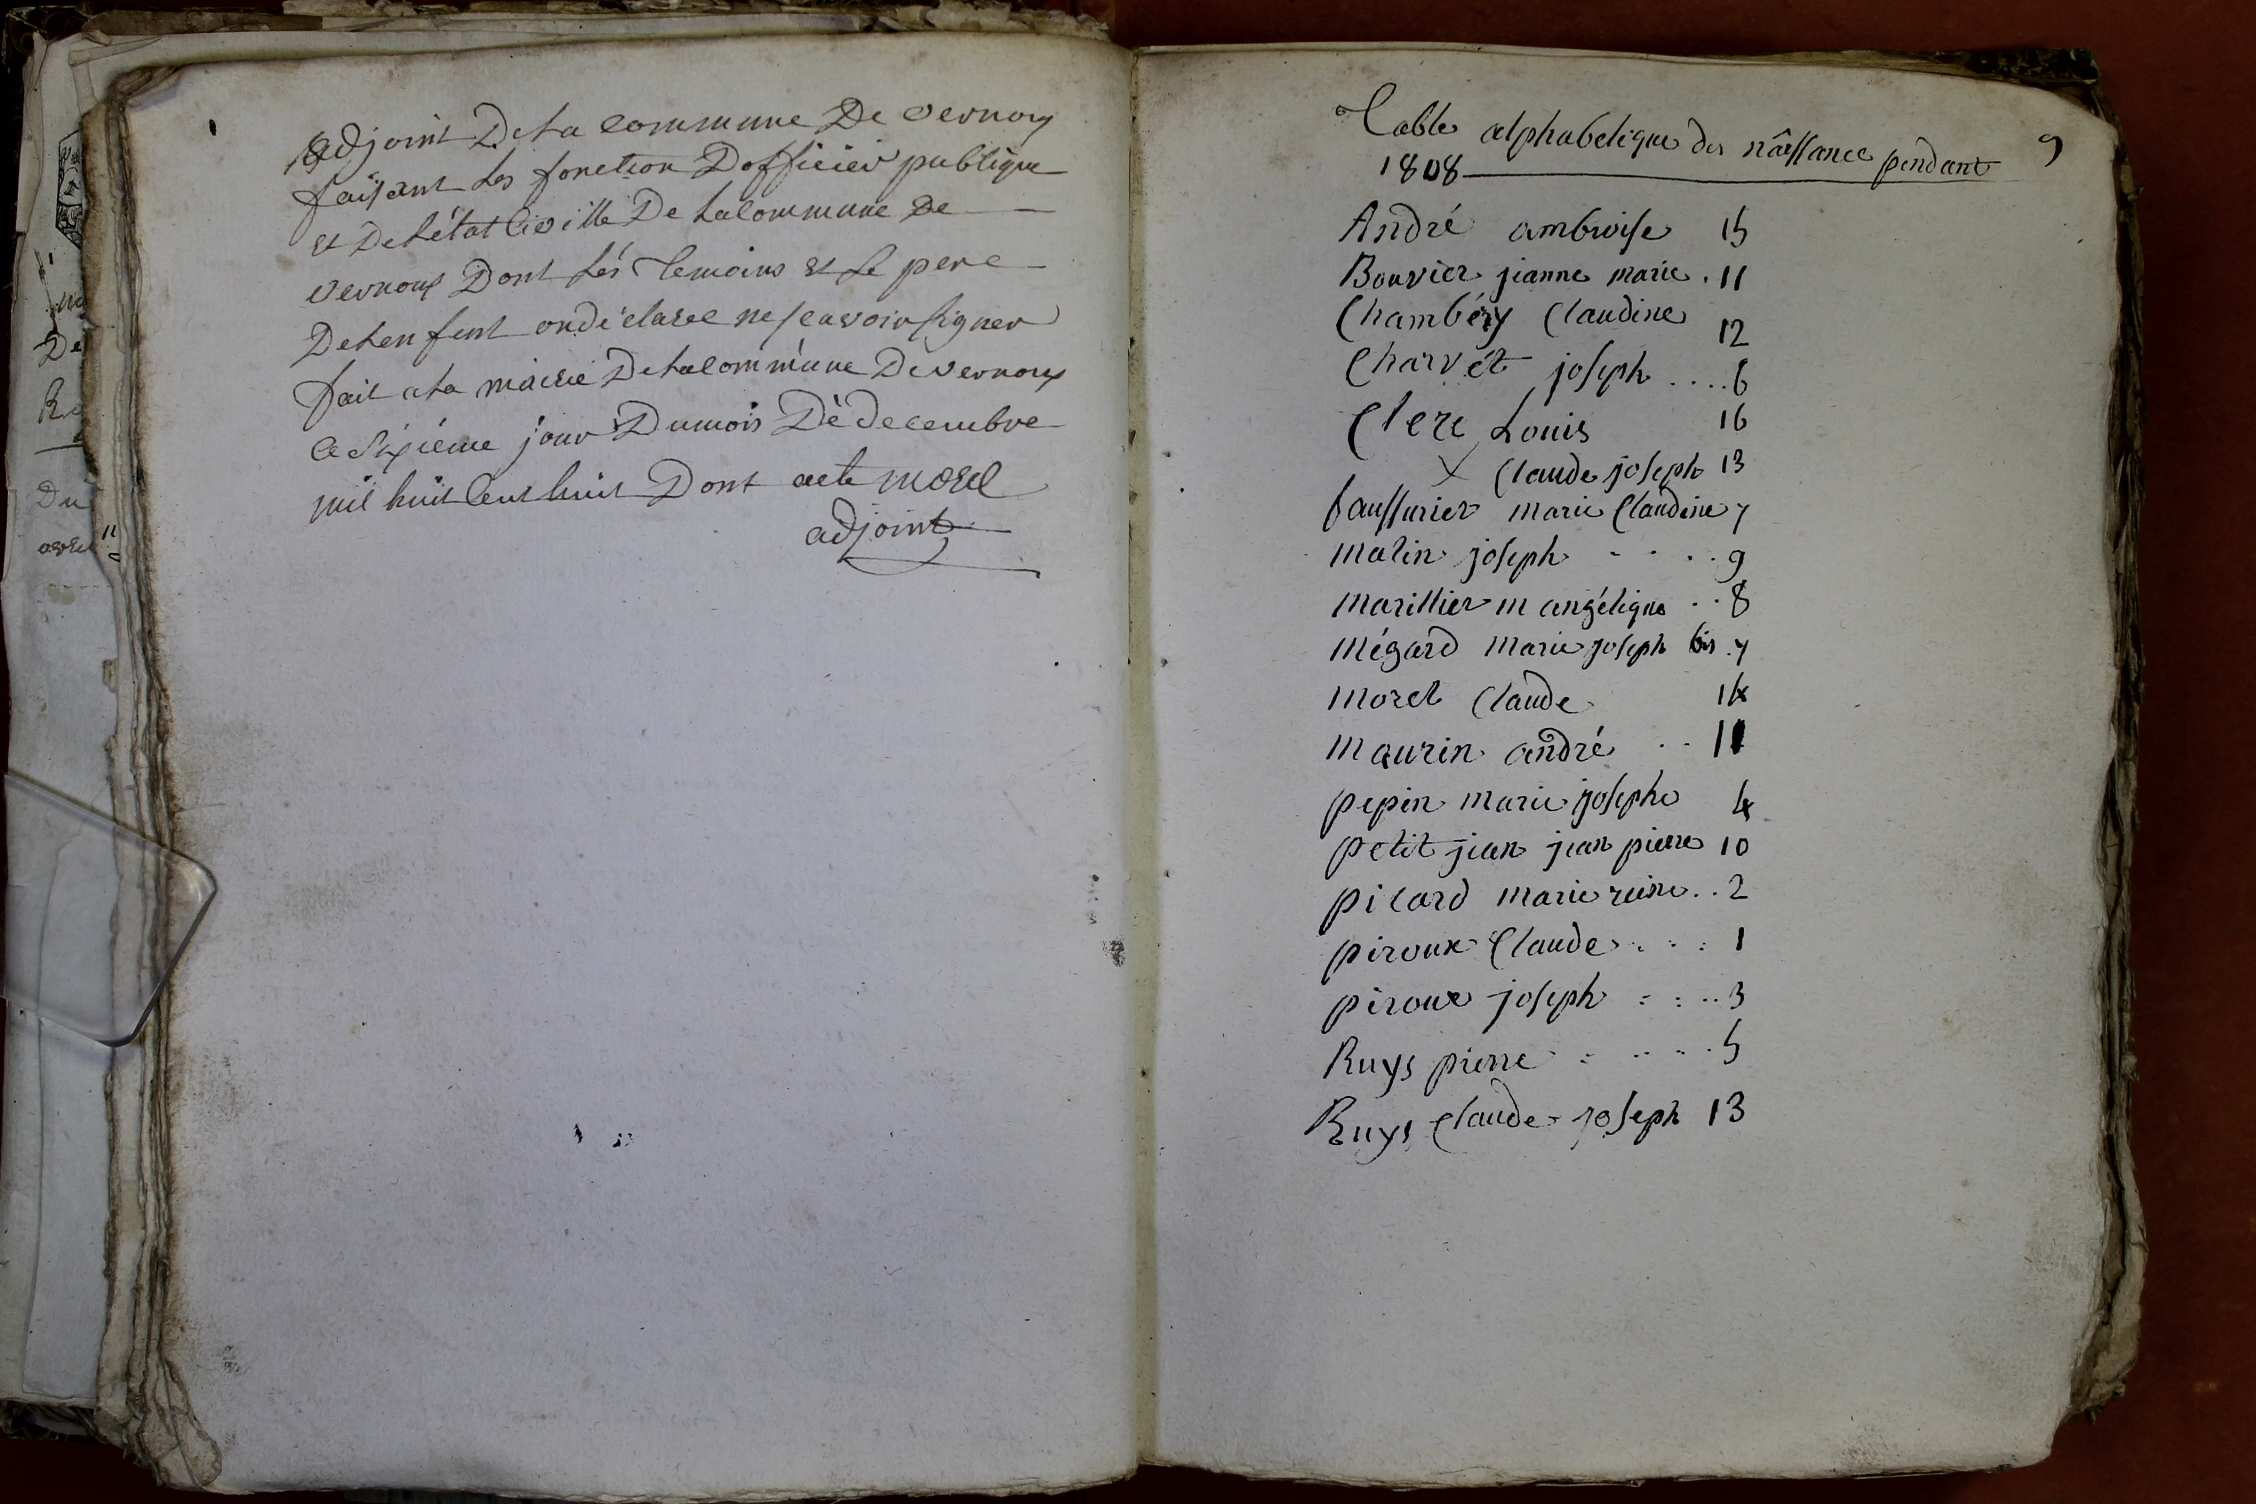 adjoint De La commune De vernoux
faisant Les fonction Dofficier publique
et De Létat Civille De La Commune De
vernoux Dont Les temoins et Le pere
De Lenfent onde clarée ne scavoir signer
fait a La mairie De La commune De vernoux
Le sixiéme jour Du mois Dé Decembre
mil huit Cent huit Dont acte morel
adjoint
De
Du
9
Table alphabetique des nâissance pendant
1808
André ambroise 15
Bouvier jeanne marie . 11
Chambéry Claudine 12
Charvét joseph .... 6
Clerc Louis 16
X Claude joseph 13
faussurier marie Claudine 7
malin joseph .... 9
marillier m angélique .. 8
Mégard marie joseph bis . 7
morel Claude 14
maurin andré .. 11
pepin marie josephe 4
petit jean jean pierre 10
picard marie reine .. 2
piroux Claude .... 1
piroux joseph .... 3
Ruys pierre ..... 5
Ruys Claude joseph 13